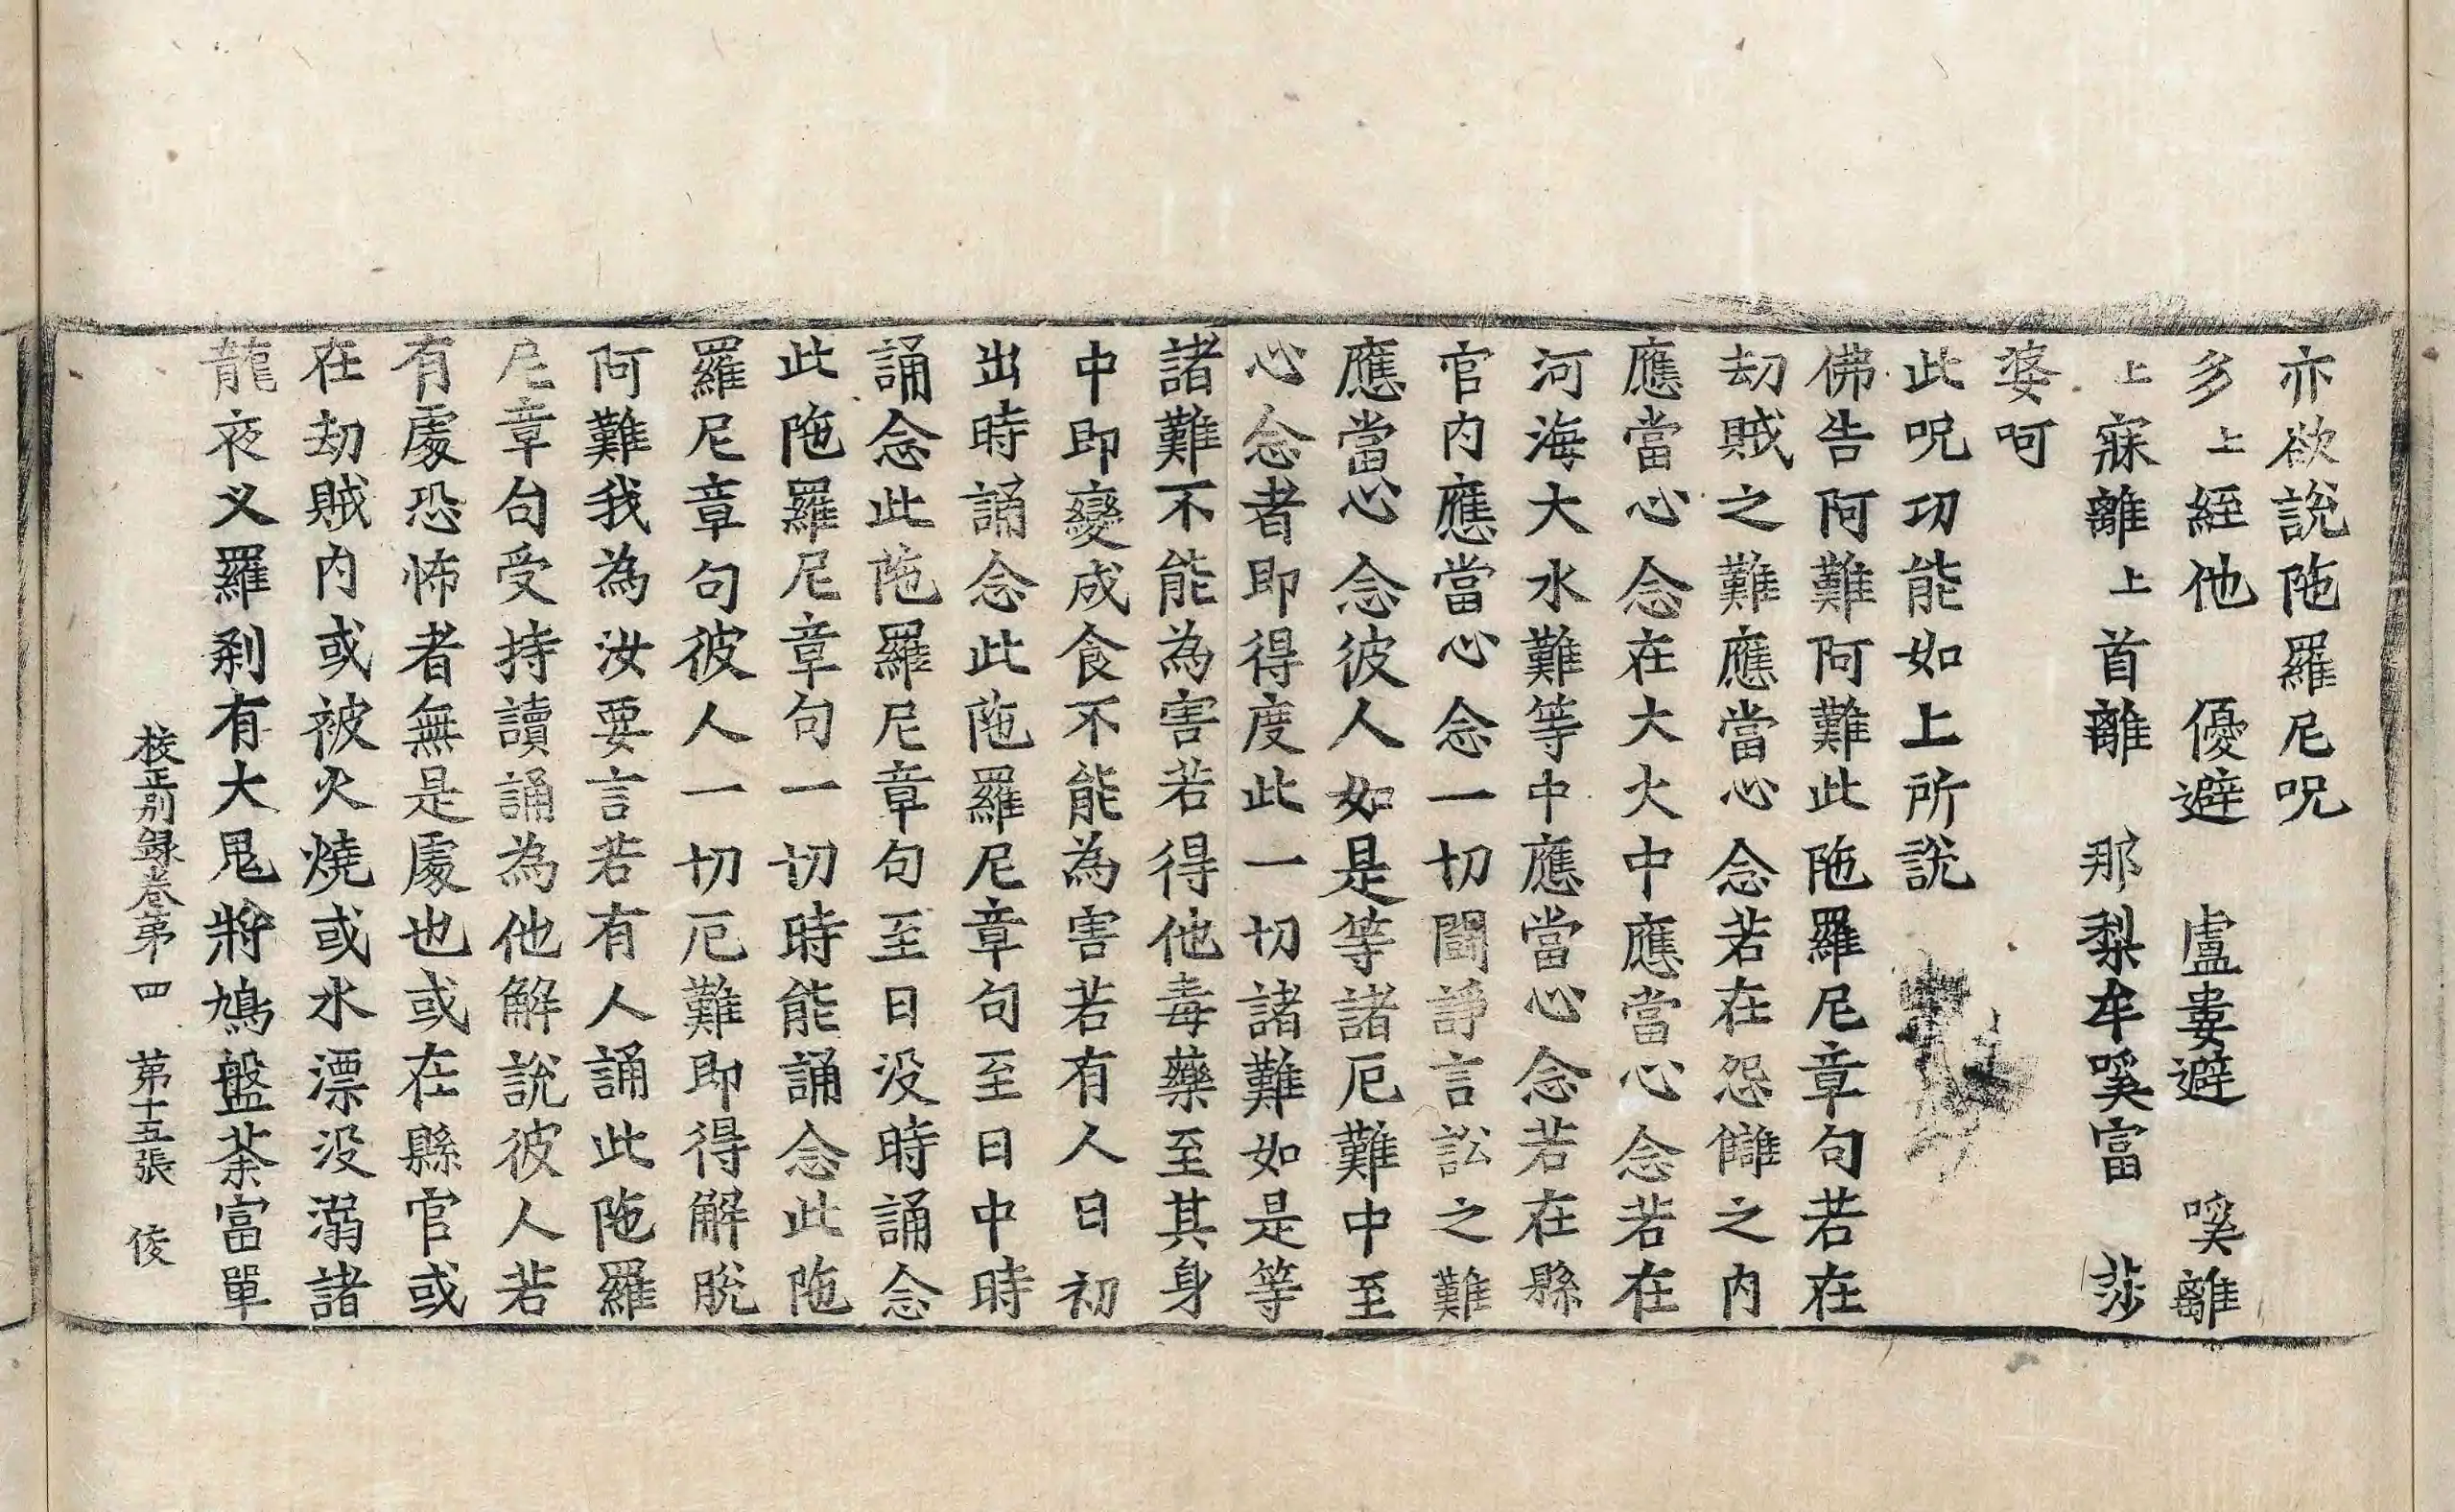 亦欲說陁羅尼呪
多上緸他　優避　盧婁避　嘊離
上寐離上首離　那梨牟嘊富　莎
婆呵
此呪功能如上所說
佛告阿難阿難此陁羅尼章句若在
劫賊之難應當心念若在怨讎之內
應當心念在大火中應當心念若在
河海大水難等中應當心念若在縣
官內應當心念一切鬪諍言訟之難
應當心念彼人如是等諸厄難中至
心念者即得度此一切諸難如是等
諸難不能為害若得他毒藥至其身
中即變成食不能為害若有人日初
出時誦念此陁羅尼章句至日中時
誦念此陁羅尼章句至日没時誦念
此陁羅尼章句一切時能誦念此陁
羅尼章句彼人一切厄難即得解脫
阿難我為汝要言若有人誦此陁羅
尼章句受持讀誦為他解說彼人若
有處恐怖者無是處也或在縣官或
在劫賊內或被火燒或水漂没溺諸
龍夜义羅刹有大鬼將鳩盤荼富單
校正別録卷第四　第十五張　俊